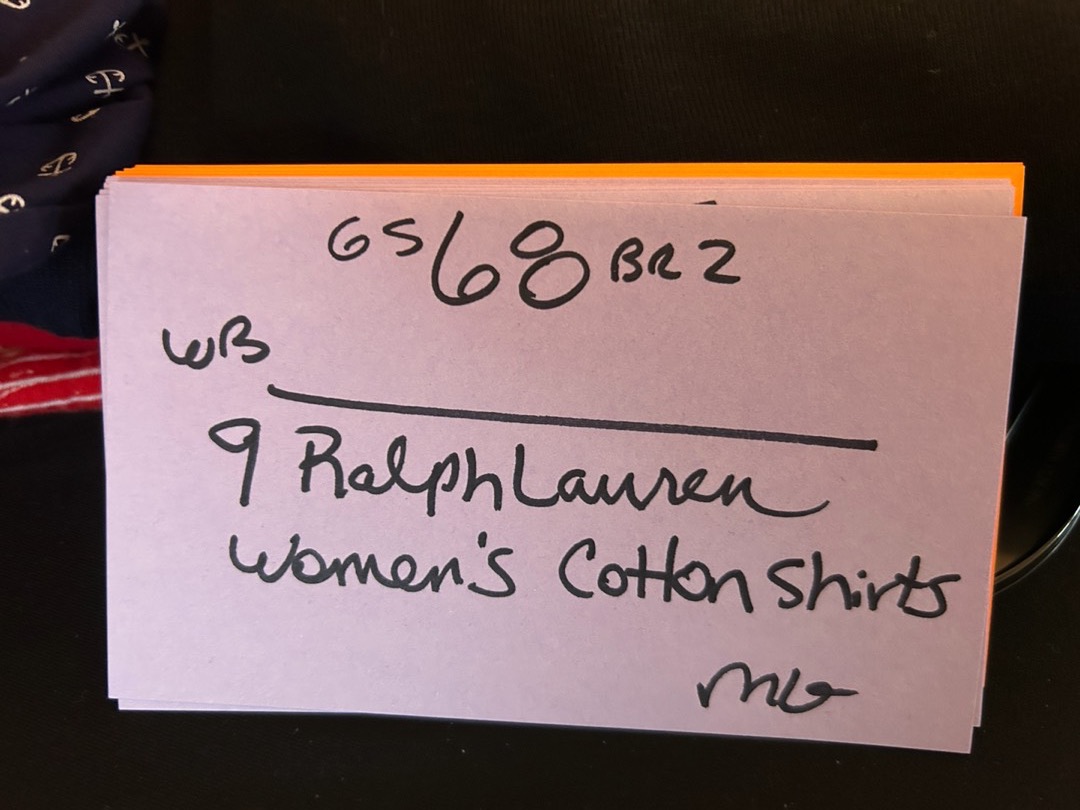 GS 68 BR2
WB
9 Ralph Lauren
Women's Cotton Shirts
MG